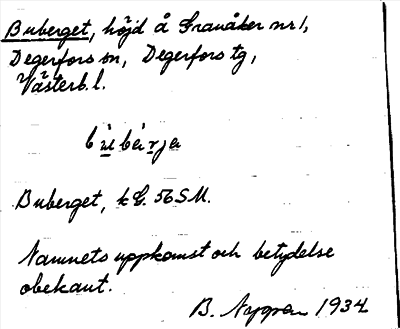 Buberget, höjd å Granåker nr 1,
Degerfors sn, Degerfors tg,
Västerb. l.
Buberget, 56 SM.
Namnets uppkomst och betydelse
obekant.
B. 1934